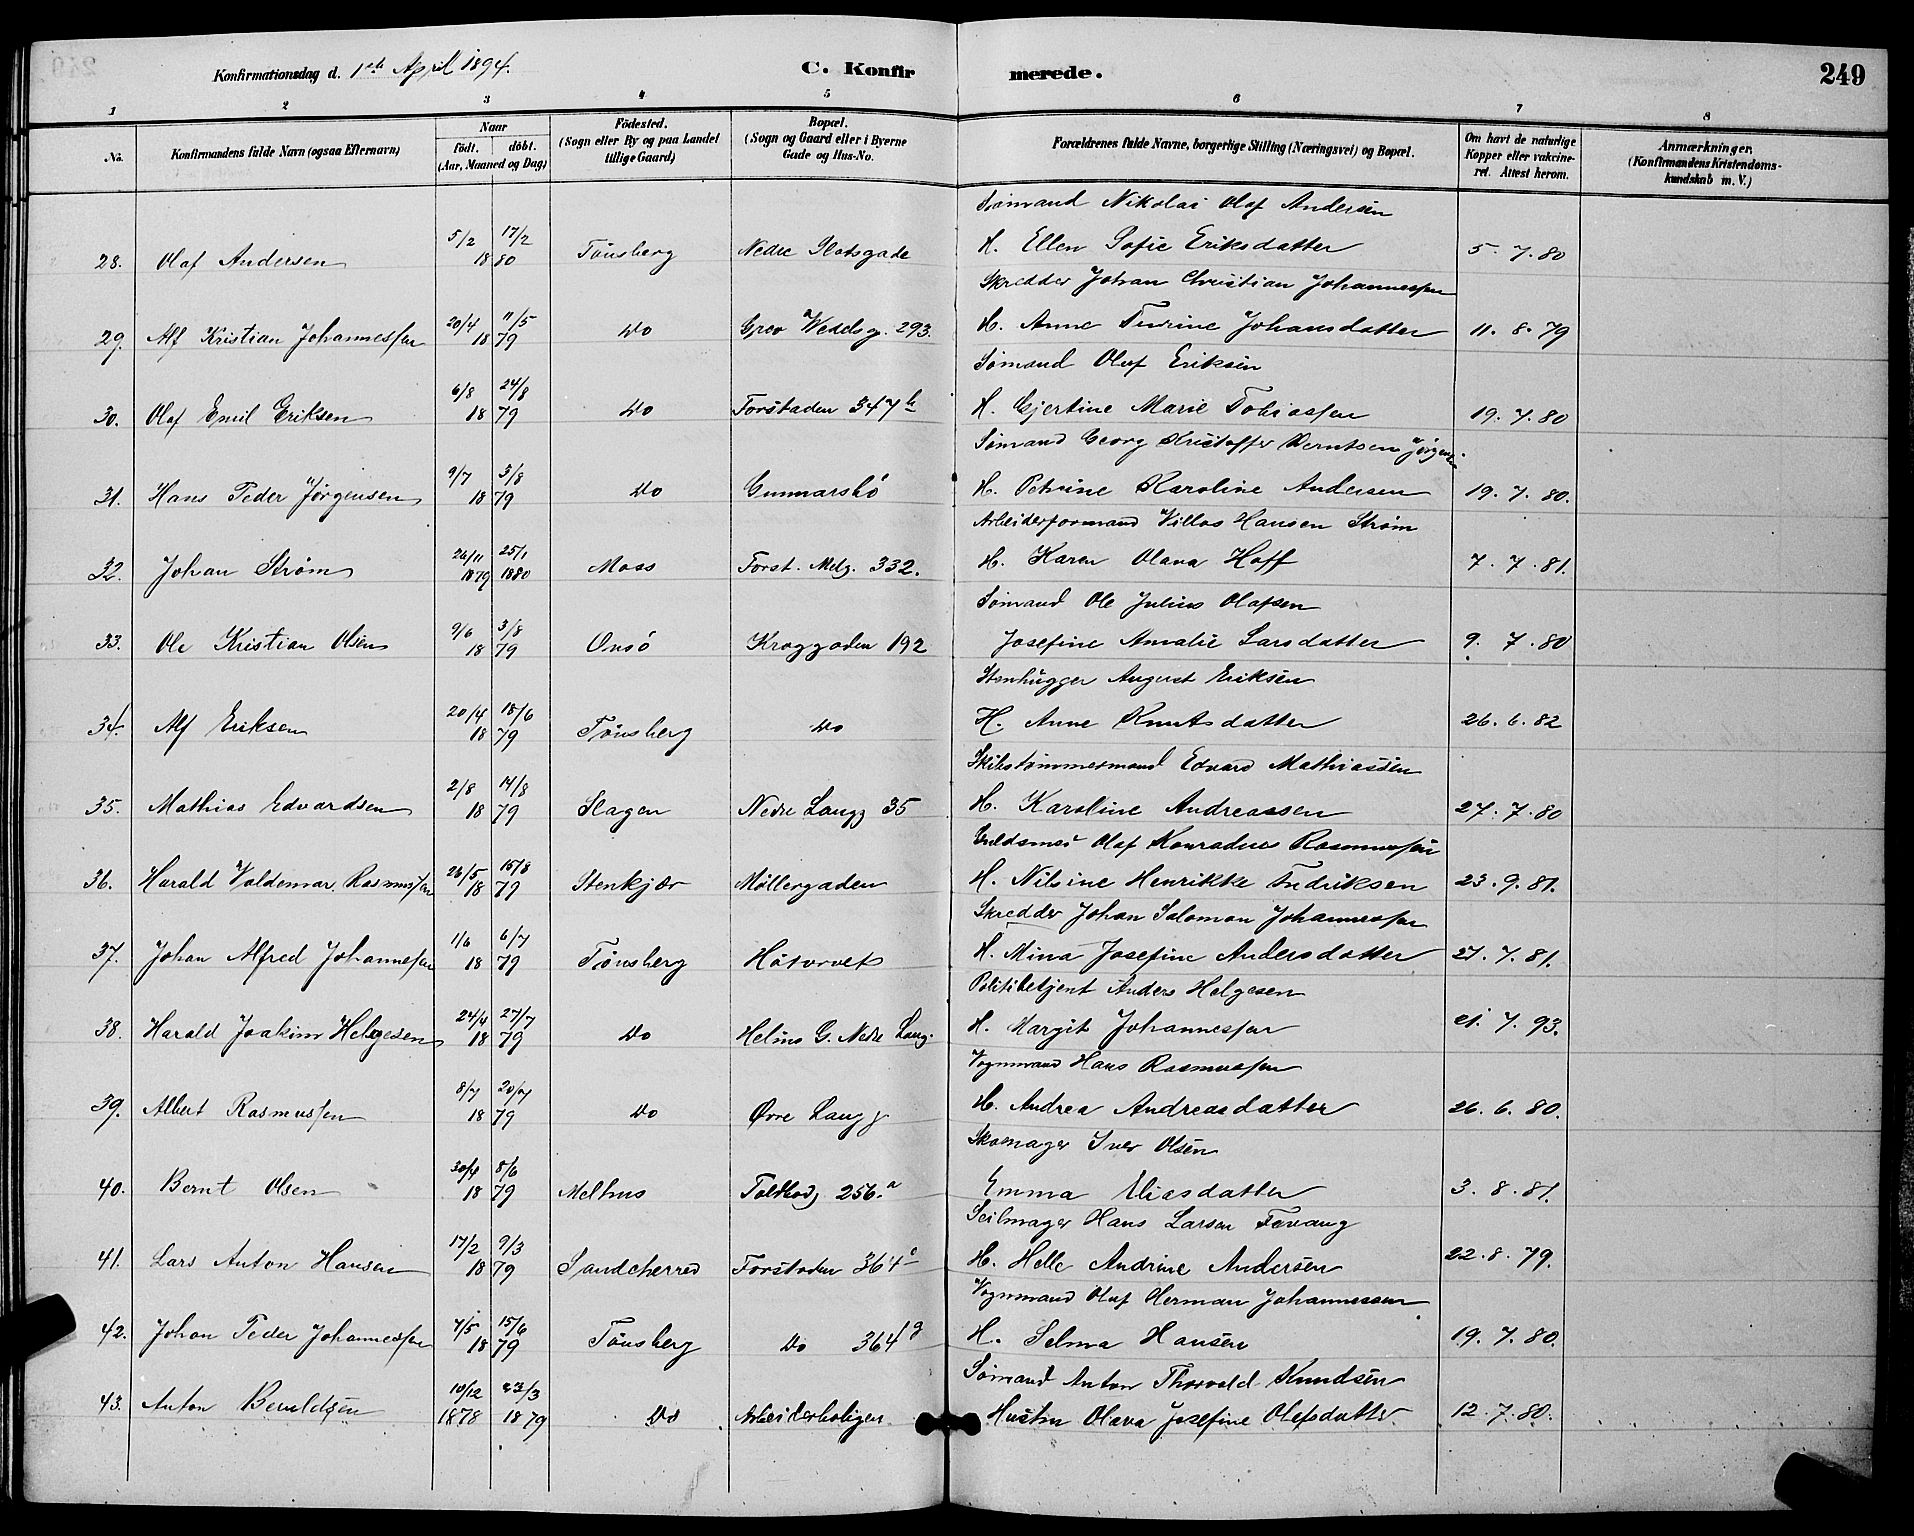 Konfirmationsdag d. 1ste April 1894. C. Konfirmerede. 249
1 2 3 4 5 6 7 8
No. Konfirmandens fulde Navn (ogsaa Efternavn) Naar født. døbt. (Aar, Maaned og Dag) Fødested. (Sogn eller By og paa Landet tillige Gaard) Bopæl. (Sogn og Gaard eller i Byerne Gade og Hus-No. Forældrenes fulde Navne, borgerlige Stilling (Næringsvei) og Bopæl. Om havt de naturlige Kopper eller vakcineret. Attest herom. Anmærkninger. (Konfirmandens Kristendomskundskab m. V.)
Sømand Nikolai Olaf Andersen
28. Olaf Andersen 5/2 17/2 1880 Tønsberg Nedre Slotsgade H. Ellen Sofie Eriksdatter 5. 7. 80
Skredder Johan Christian Johannessen
29. Alf Kristian Johannessen 20/4 11/5 1879 Do Grev Wedelsg. 293. H. Anne Turine Johansdatter 11. 8. 79
Sømand Oluf Eriksen
30. Olaf Emil Eriksen 6/8 24/8 1879 Do Forstaden 347 b H. Gjertine Marie Tobiassen 19. 7. 80
Sømand Georg Kristoffer Berntsen Jørgensen
31. Hans Peder Jørgensen 9/7 3/8 1879 Do Gunnarsbø H. Petrine Karoline Andersen 19. 7. 80.
Arbeiderformand Villas Hansen Strøm
32. Johan Strøm 26/11 1879 25/1 1880 Moss Forst. Melg. 332. H. Karen Olava Hoff 7. 7. 81.
Sømand Ole Julius Olafsen
33. Ole Kristian Olsen 9/6 3/8 1879 Onsö Kroggaden 192 Josefine Amalie Larsdatter 9. 7. 80
Stenhugger August Eriksen
34. Alf Eriksen 20/4 18/6 1879 Tønsberg Do H. Anne Knutsdatter 26. 6. 82
Skibstømmermand Edvard Mathiassen
35. Mathias Edvardsen 2/8 14/8 1879 Slagen Nedre Langg 35 H. Karoline Andreassen 27. 7. 80
Guldsmed Olaf Konradius Rasmussen
36. Harald Valdemar Rasmussen 26/5 15/8 1879 Stenkjær Møllergaden H. Nilsine Henrikke Fredriksen 23. 9. 81.
Skredder Johan Salomon Johannessen
37. Johan Alfred Johannessen 1/6 6/7 1879 Tønsberg Høtorvet H. Mina Josefine Andersdatter 27. 7. 81.
Politibetjent Anders Helgesen
38. Harald Joakim Helgesen 24/4 27/7 1879 Do Helms G. Nedre Lang. H. Margit Johannessen 21. 7. 93.
Vognmand Hans Rasmussen
39. Albert Rasmussen 8/7 20/7 1879 Do Øvre Langg H. Andrea Andreasdatter 26. 6. 80.
Skomager Iver Olsen
40. Bernt Olsen 30/4 8/6 1879 Melhus Toldbodg 256. a Emma Eliasdatter 3. 8. 81.
Seilmager Hans Larsen Fevang
41. Lars Anton Hansen 17/2 9/3 1879 Sandeherred Forstaden 364 c H. Helle Andrine Andersen 22. 8. 79.
Vognmand Oluf Herman Johannessen
42. Johan Peder Johannessen 7/5 15/6 1879 Tønsberg Do 364 g H. Selma Hansen 19. 7. 80.
Sømand Anton Thorvald Knudsen
43. Anton 10/12 1878 23/3 1879 Do Arbeiderboligen Hustru Olava Josefine Olefsdatter 12. 7. 80.